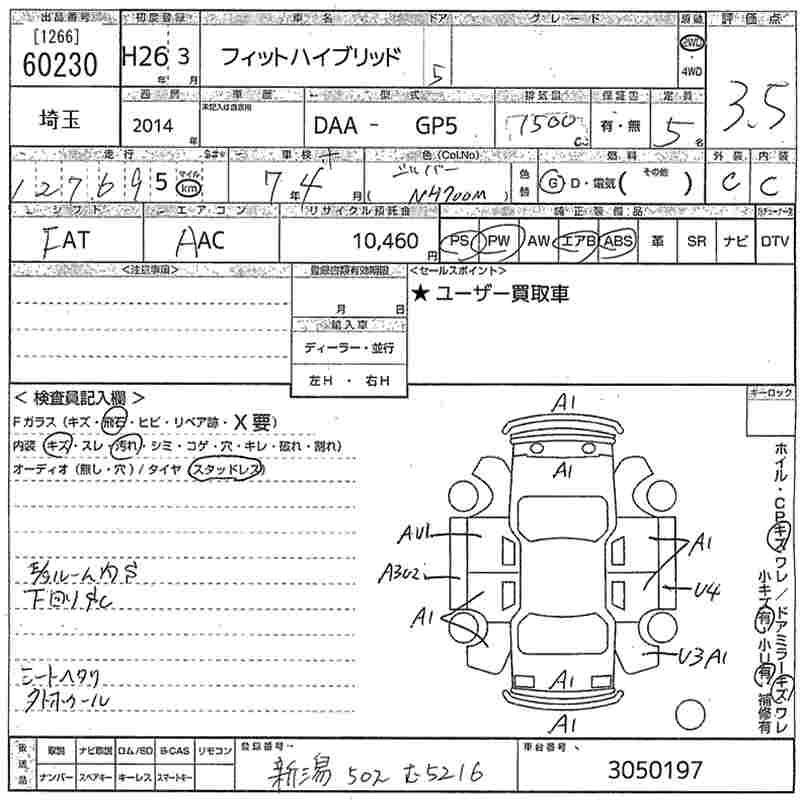 出品番号 初度登録 車名 ドア グレード 駆動 評価点
[1266]
60230 H26年 3月 フィットハイブリッド 5 2WD 3.5
4WD
西暦 車歴 型式 排気量 保証書 定員
埼玉 2014年 未記入は自家用 DAA - GP5 1500cc 有・無 5名
走行 車検 色(Col.No) 燃料 外装 内装
127695 マイル km 7年4月 シルバー (NH700M) 色替 G・D・電気( その他 ) C C
シフト エアコン リサイクル預託金 純正装備品
FAT AAC 10,460円 PS PW AW エアB ABS 革 SR ナビ DTV
<注意事項> 登録書類有効期限 <セールスポイント>
月 日 ★ ユーザー買取車
輸入車
ディーラー・並行
左H ・ 右H
< 検査員記入欄 > キーロック
Fガラス (キズ・飛石・ヒビ・リペア跡・X要)
内装 (キズ・スレ・汚れ・シミ・コゲ・穴・キレ・破れ・割れ)
オーディオ (無し・穴) / タイヤ (スタッドレス)
A1
A1
AU1
A1
A3U2
U4
A1
U3 A1
A1
A1
ルーム内S
下回りSC
シートヘタリ
ホイル・CPキズワレ / ドアミラーキズワレ
小キズ有・小U有・補修有
後送品 取説 ナビ取説 ロム/SD B-CAS リモコン 登録番号 車台番号
ナンバー スペアキー キーレス スマートキー 新潟 502 む5216 3050197